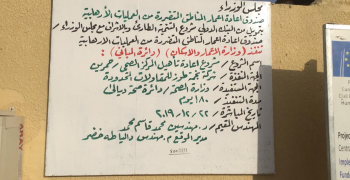 مجلس الوزراء
صندوق اعادة اعمار المناطق المتضررة من العمليات الأرهابية
بتمويل من البنك الدولي / مشروع التنمية الطارئ وبالاشراف مع مجلس الوزراء /
صندوق اعادة اعمار المناطق المتضررة من العمليات الارهابية
تنفذ (وزارة الاعمار والاسكان) (دائرة المباني)
اسم المشروع / مشروع اعادة تاهيل المركز الصحي / حمرين
الجهة المنفذة / شركة نجمة طوز للمقاولات المحدودة
الجهة المستفيدة / وزارة الصحة / دائرة صحة ديالى
مدة التنفيذ / ١٨٠ يوم
تاريخ المباشرة / ٢٢ / ١٢ / ٢٠١٩
المهندس المقيم / ر. مهندسين محمد قاسم محمد
مدير الموقع / م. مهندس واليا طه خضر
Project